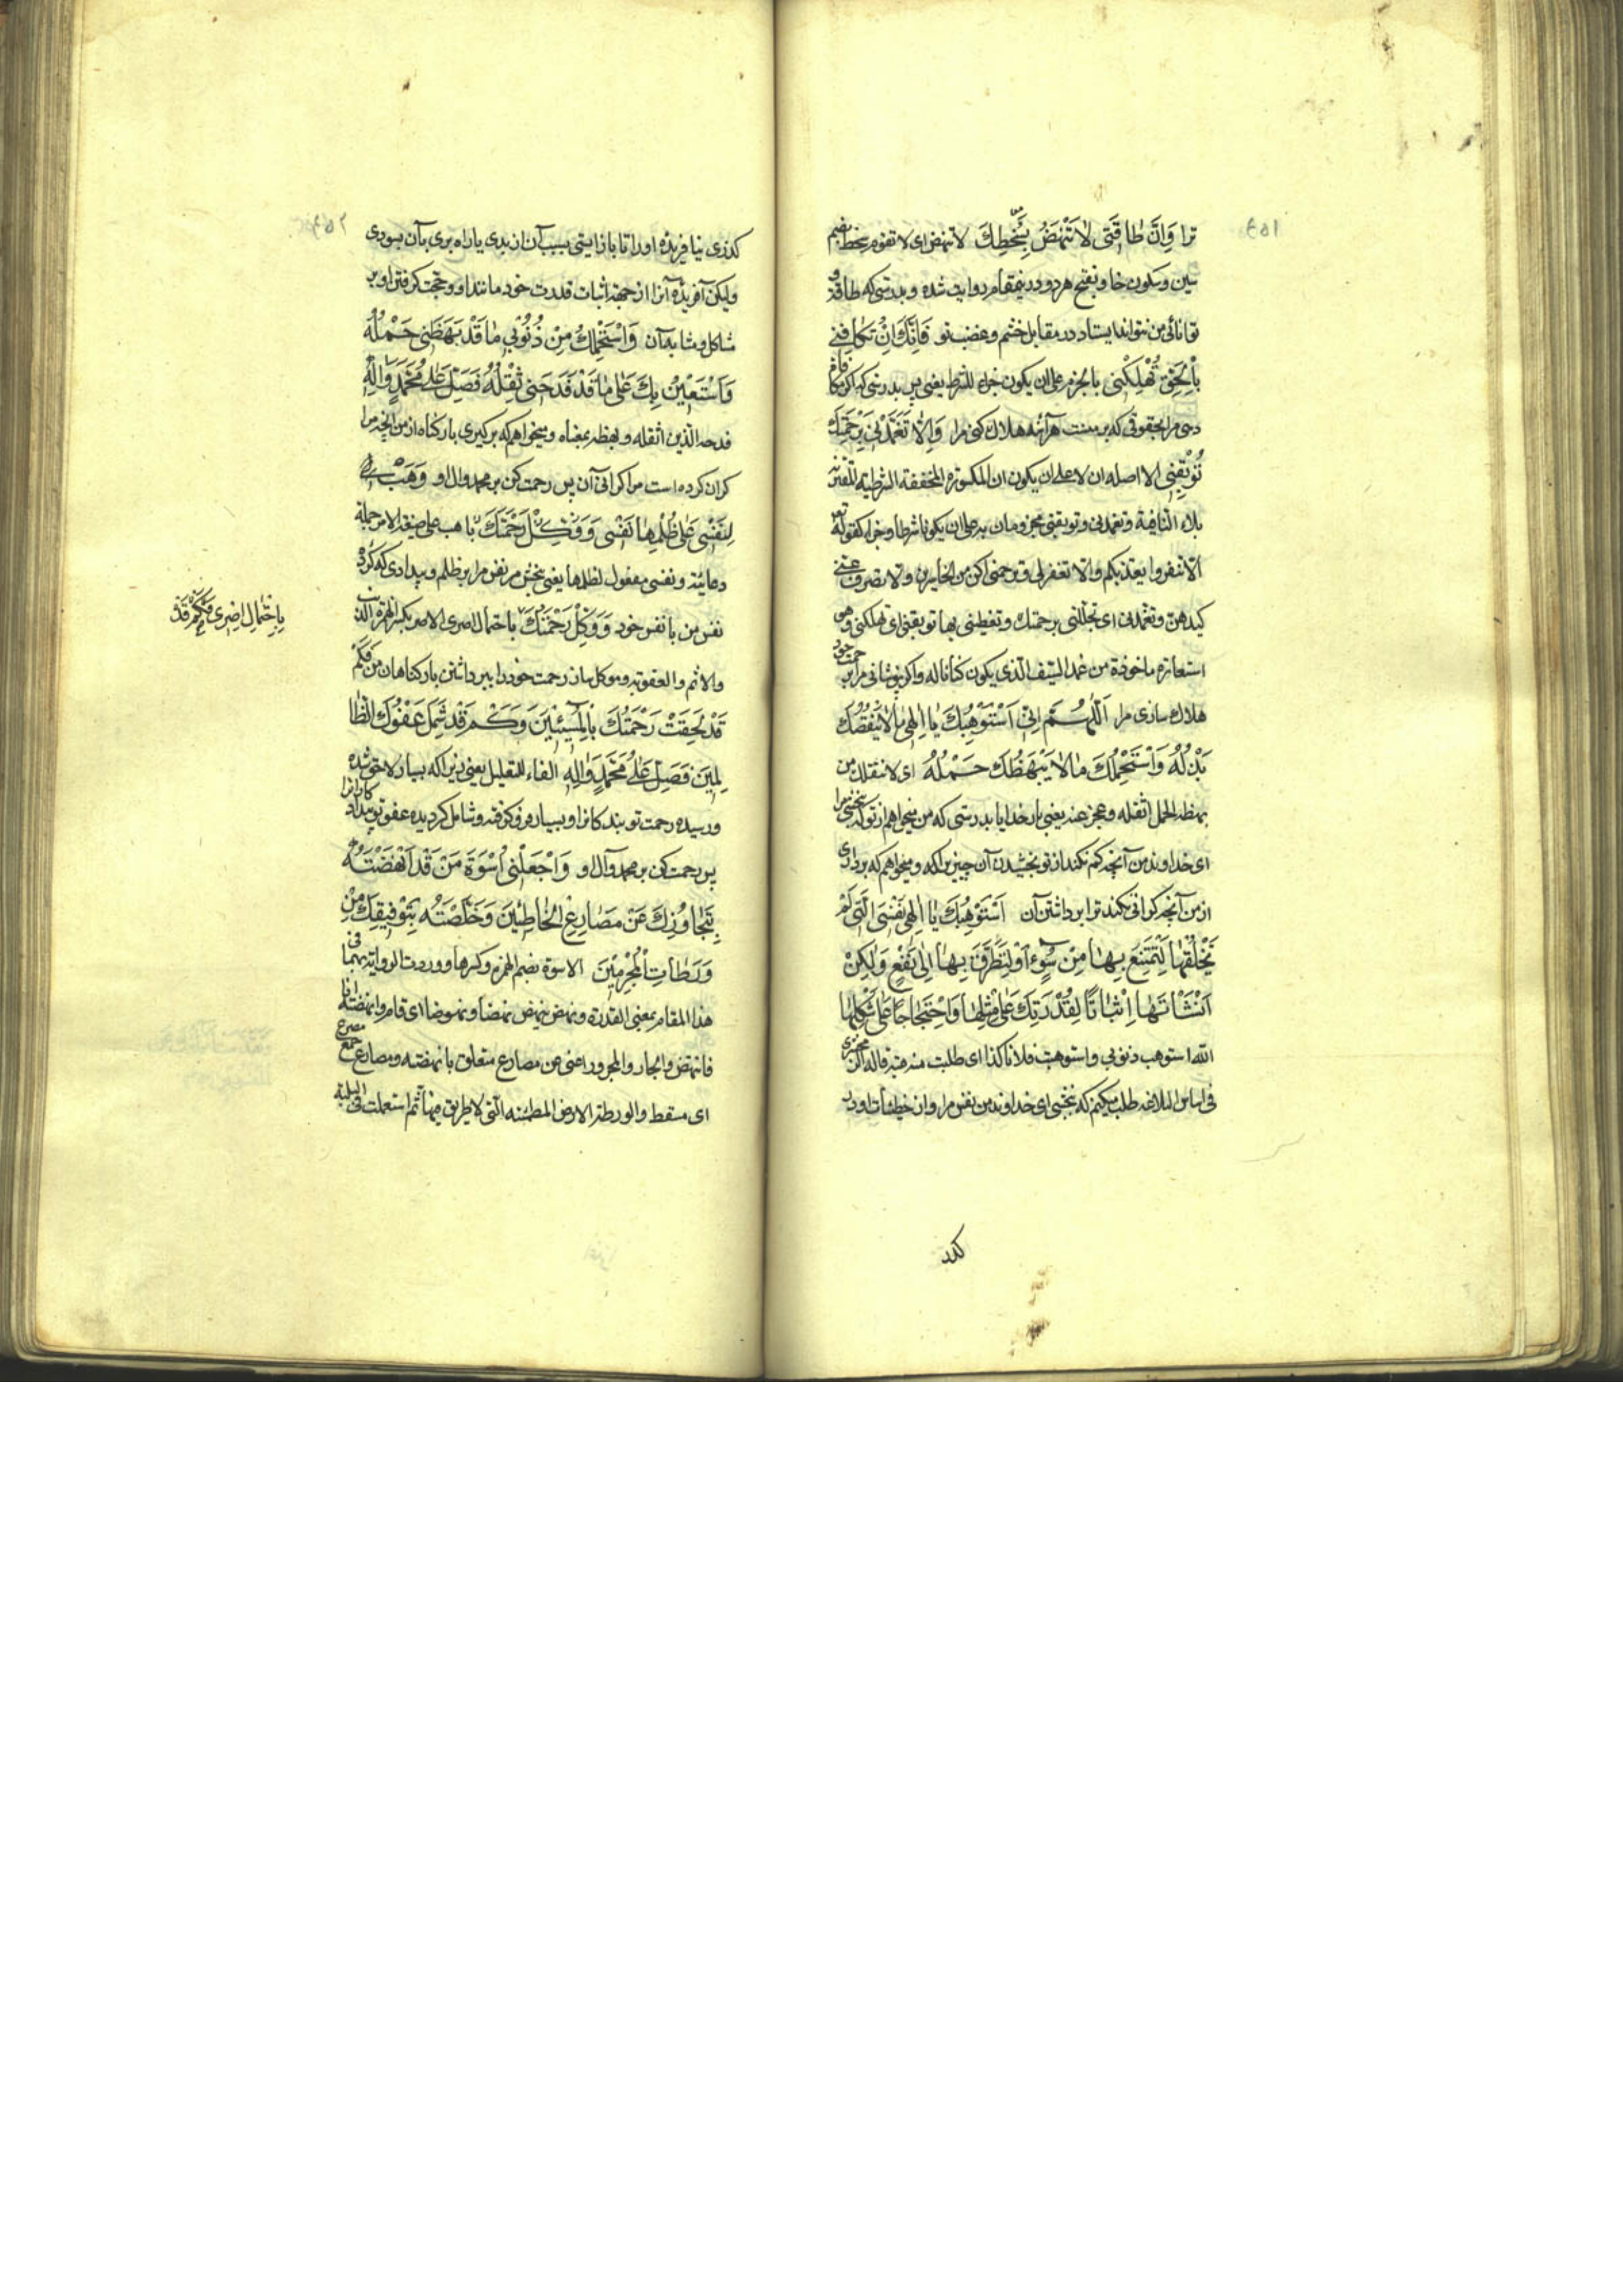 ۴۵۱
ترا وَاِنَّ طٰاقَتی لاٰ تَنْهَضُ بِسُخْطِكَ لا تنهض ای لا تقوم سخط بضم
سین وسکون خا وبفتح هر دو درینمقام روایت شده وبدرستی که طاقة و
توانائی من نتواند ایستاد در مقابل خشم وغضب تو فَاِنَّكَ اِنْ تُكٰافِنی
بِالْحَقِّ تُهْلِكْنی بالجزم علی ان یکون جزاء للشرط یعنی پس بدرستی که اکر مکافات
دهی مرا بحقوقی که بر منست هرآینه هلاك کنی مرا وَاِلاّٰ تَغَمَّدْنی بِرَحْمَتِكَ
تُوبِقْنی الا اصله ان لا علی ان یکون ان المکسوره المخففة الشرطیة المقترنة
بلاء النافیة وتغمدنی وتوبقنی مجزومان به علی ان یکونا شرطا وجزاء کقوله تع
الا تنفروا یعذبکم والا تغفر لی وترحمنی اکن من الخاسرین والا تصرف عنی
کیدهن وتغمدنی ای تجللنی برحمتك وتغطینی بها توبقنی ای تهلکنی وهی
استعارة ماخوذة من غمد السیف الذی یکون کنانا له واکر نپوشانی مرا برحمت خود
هلاك سازی مرا اَللّٰهُمَّ اِنّی اَسْتَوْهِبُكَ یٰا اِلٰهی مٰا لاٰ یَنْقُصُكَ
بَذْلُهُ وَاَسْتَحْمِلُكَ مٰا لاٰ یَبْهَظُكَ حَمْلُهُ ای لا یثقلك من
بهظه الحمل اثقله وعجز عنه یعنی بار خدایا بدرستی که من میخواهم از تو که ببخشی مرا
ای خداوند من آنچه کم نکند از تو بخشیدن آن چیز براکه ومیخواهم که برداری
از من آنچه کرانی نکند ترا برداشتن آن اَسْتَوْهِبُكَ یٰا اِلٰهی نَفْسِیَ الَّتی لَمْ
تَخْلُقْهٰا لِتَمْتَنِعَ بِهٰا مِنْ سُوٓءٍ اَوْ لِتَطَرَّقَ بِهٰا اِلیٰ نَفْعٍ وَلٰكِنْ
اَنْشَأْتَهٰا اِثْبٰاتًا لِقُدْرَتِكَ عَلیٰ مِثْلِهٰا وَاحْتِجٰاجًا عَلیٰ شَكْلِهٰا
الله استوهب ذنوبی واستوهبت فلانا کذا ای طلبت منه هبته قاله الزمخشری
فی اساس البلاغه طلب میکنم که ببخشی ای خداوند من نفس مرا وان خطیئات او
کدر
۴۵۲
کذری نیافریدهٔ او را تا باز ایستی بسبب آن از بدی یا راه بری بآن بسودی
ولیکن آفریدهٔ آنرا از جهة اثبات قدرت خود مانند او وحجت کرفتن او بر
شاکل ومشابه آن وَاَسْتَحْمِلُكَ مِنْ ذُنُوبی مٰا قَدْ بَهَظَنی حَمْلُهُ
وَاَسْتَعینُ بِكَ عَلیٰ مٰا قَدْ فَدَحَنی ثِقْلُهُ فَصَلِّ عَلیٰ مُحَمَّدٍ وَاٰلِهِ
فدحه الدین اثقله وبهظه بمعناه ومیخواهم که برکیری بار کناه از من آنچه مرا
کران کرده است مرا کرانی آن پس رحمت کن بر محمد وال او وَهَبْ
لِنَفْسی عَلیٰ ظُلْمِهٰا نَفْسی وَوَكِّلْ رَحْمَتَكَ با هب علی صیغة الامر جملة
دعائیة ونفسی مفعول لظلمها یعنی ببخش مر نفس مرا بر ظلم وبیدادی که کرد
نفس من با نفس خود وَوَكِّلْ رَحْمَتَكَ بِاحْتِمٰالِ اِصْری الاصر بکسر الهمزة الذنب
والاثم والعقوبة وموکل ساز رحمت خود را ببرداشتن بار کناهان من فَكَمْ
قَدْ لَحِقَتْ رَحْمَتُكَ بِالْمُسیئینَ وَكَمْ قَدْ شَمِلَ عَفْوُكَ الظّٰا
لِمینَ فَصَلِّ عَلیٰ مُحَمَّدٍ وَاٰلِهِ الفاء للتعلیل یعنی زیرا که بسیار لاحق شده
ورسیده رحمت تو ببدکانرا وبسیار فرو کرفته وشامل کردیده عفو تو بیدادکارانرا
پس رحمت کن بر محمد وآل او وَاجْعَلْنی اُسْوَةَ مَنْ قَدْ اَنْهَضْتَهُ
بِتَجٰاوُزِكَ عَنْ مَصٰارِعِ الْخٰاطِئینَ وَخَلَّصْتَهُ بِتَوْفیقِكَ مِنْ
وَرَطٰاتِ الْمُجْرِمینَ الاسوة بضم الهمزة وکسرها ووردت الروایة بهما فی
هذا المقام بمعنی القدوة ونهض ینهض نهضا ونهوضا ای قام وانهضته انا
فانتهض والجار والمجرور اعنی من مصارع متعلق بانهضته ومصارع جمع مصرع
ای مسقط والورطة الارض المطمئنه التی لا طریق فیها ثم استعملت فی البلیة
بِاحْتِمٰالِ اِصْری فَكَمْ قَدْ